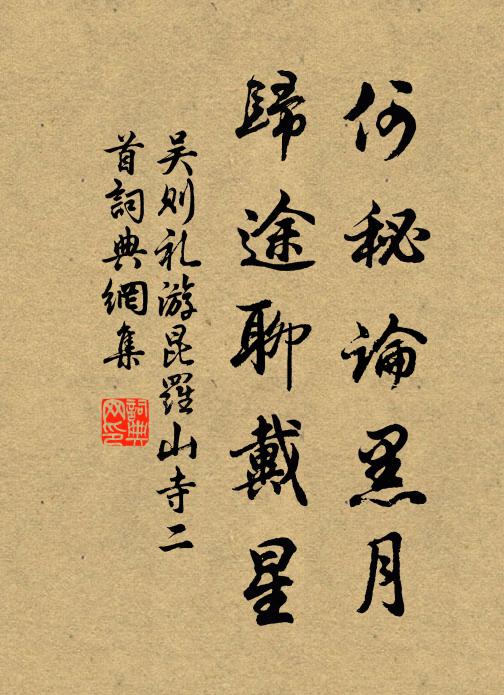 何秘論黑月
歸途聊戴星
吴则礼游昆羅山寺二
首詞典網集
詞典
网印